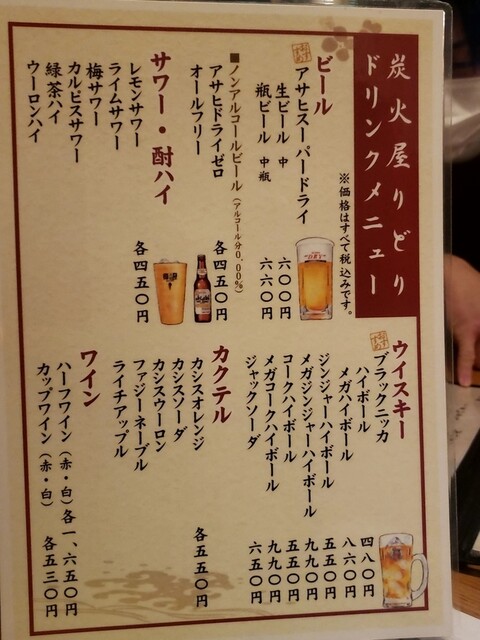 炭火屋りどり
ドリンクメニュー
※価格はすべて税込みです。
ビール
おすすめ
アサヒスーパードライ
生ビール 中 六〇〇円
瓶ビール 中瓶 六六〇円
■ノンアルコールビール(アルコール分0.00%)
アサヒドライゼロ
オールフリー
各四五〇円
サワー・酎ハイ
レモンサワー
ライムサワー
梅サワー
カルピスサワー
緑茶ハイ
ウーロンハイ
各四五〇円
ウイスキー
おすすめ
ブラックニッカ
ハイボール 四八〇円
メガハイボール 八六〇円
ジンジャーハイボール 五五〇円
メガジンジャーハイボール 九九〇円
コークハイボール 五五〇円
メガコークハイボール 九九〇円
ジャックソーダ 六五〇円
カクテル
カシスオレンジ
カシスソーダ
カシスウーロン
ファジーネーブル
ライチアップル
各五五〇円
ワイン
ハーフワイン(赤・白)各一、六五〇円
カップワイン(赤・白) 各五三〇円